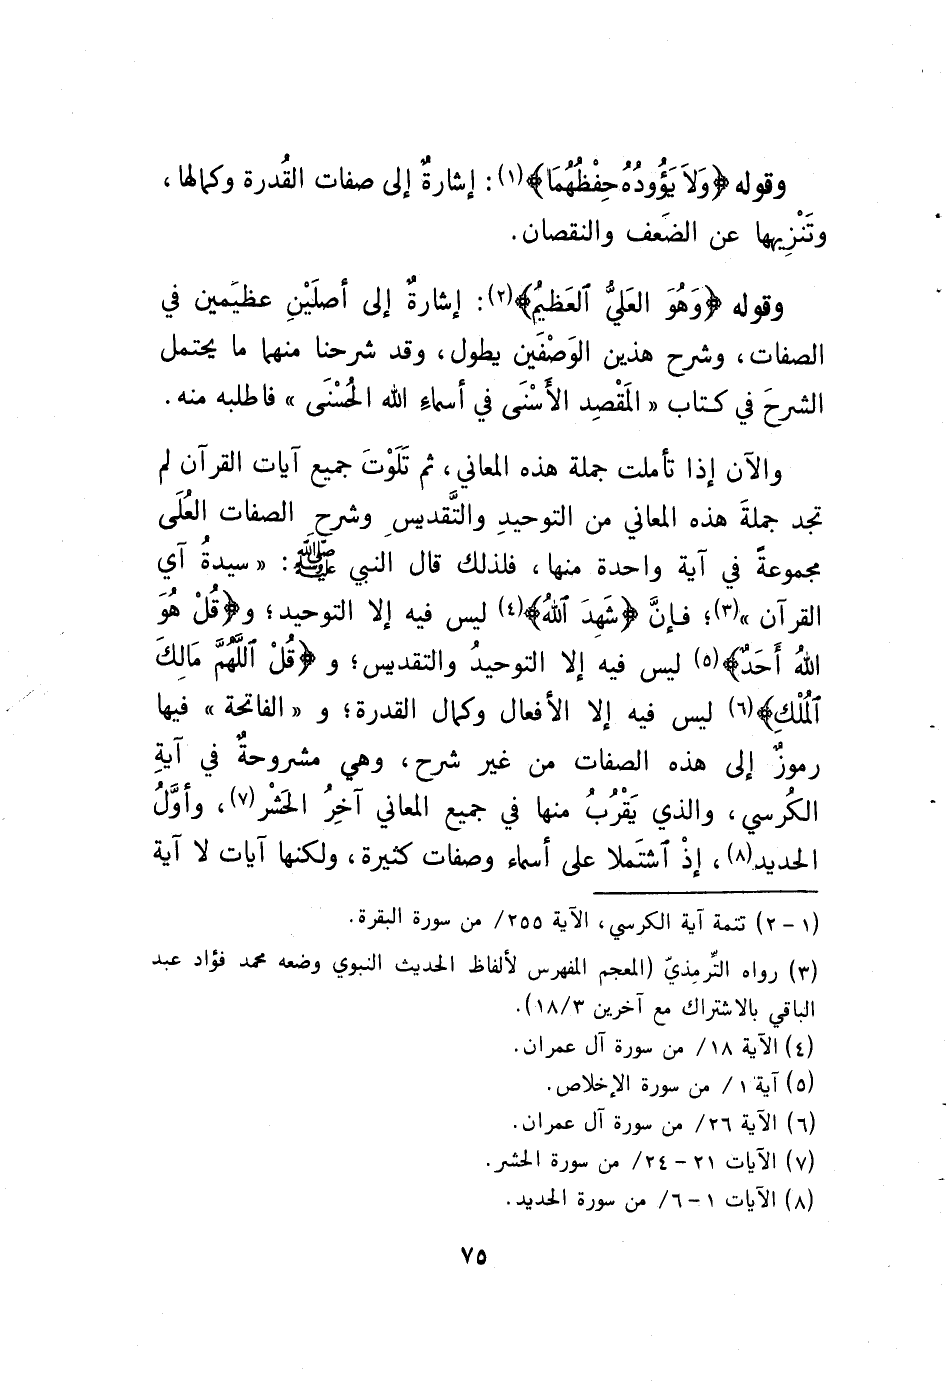 وقوله ﴿وَلاَ يَؤُودُهُ حِفْظُهُمَا﴾(١): إشارةٌ إلى صفات القُدرة وكمالها،
وتَنْزِيهها عن الضَعف والنقصان.
وقوله ﴿وَهُوَ العَليُّ ٱلعَظيمُ﴾(٢): إشارةٌ إلى أصلَيْنِ عظيَمين في
الصفات، وشرح هذين الوَصْفَين يطول، وقد شرحنا منهما ما يحتمل
الشرحَ في كتاب « المَقْصِد الأَسْنَى في أسماءِ الله الحُسْنَى » فاطلبه منه.
والآن إذا تأملت جملة هذه المعاني، ثم تَلَوْتَ جميع آيات القرآن لم
تجد جملةَ هذه المعاني من التوحيدِ والتَّقديسِ وشرحِ الصفات العُلَى
مجموعةً في آية واحدة منها، فلذلك قال النبي ﷺ: « سيدةُ آي
القرآن »(٣)؛ فإنَّ ﴿شَهِدَ ٱللهُ﴾(٤) ليس فيه إلا التوحيد؛ و﴿قُلْ هُوَ
اللهُ أَحَدٌ﴾(٥) ليس فيه إلا التوحيدُ والتقديس؛ و ﴿قُلْ ٱللَّهُمَّ مَالِكَ
ٱلمُلْكِ﴾(٦) ليس فيه إلا الأفعال وكمال القدرة؛ و « الفاتحة » فيها
رموزٌ إلى هذه الصفات من غير شرح، وهي مشروحةٌ في آيةِ
الكُرسي، والذي يَقْرُبُ منها في جميع المعاني آخِرُ الحَشْر(٧)، وأوَّلُ
الحديد(٨)، إذْ ٱشتَملا على أسماء وصفات كثيرة، ولكنها آيات لا آية
(١ - ٢) تتمة آية الكرسي، الآية ٢٥٥/ من سورة البقرة.
(٣) رواه التِّرمِذيّ (المعجم المفهرس لألفاظ الحديث النبوي وضعه محمد فؤاد عبد
الباقي بالاشتراك مع آخرين ١٨/٣).
(٤) الآية ١٨/ من سورة آل عمران.
(٥) آية ١/ من سورة الإخلاص.
(٦) الآية ٢٦/ من سورة آل عمران.
(٧) الآيات ٢١ - ٢٤/ من سورة الحشر.
(٨) الآيات ١ - ٦/ من سورة الحديد.
٧٥